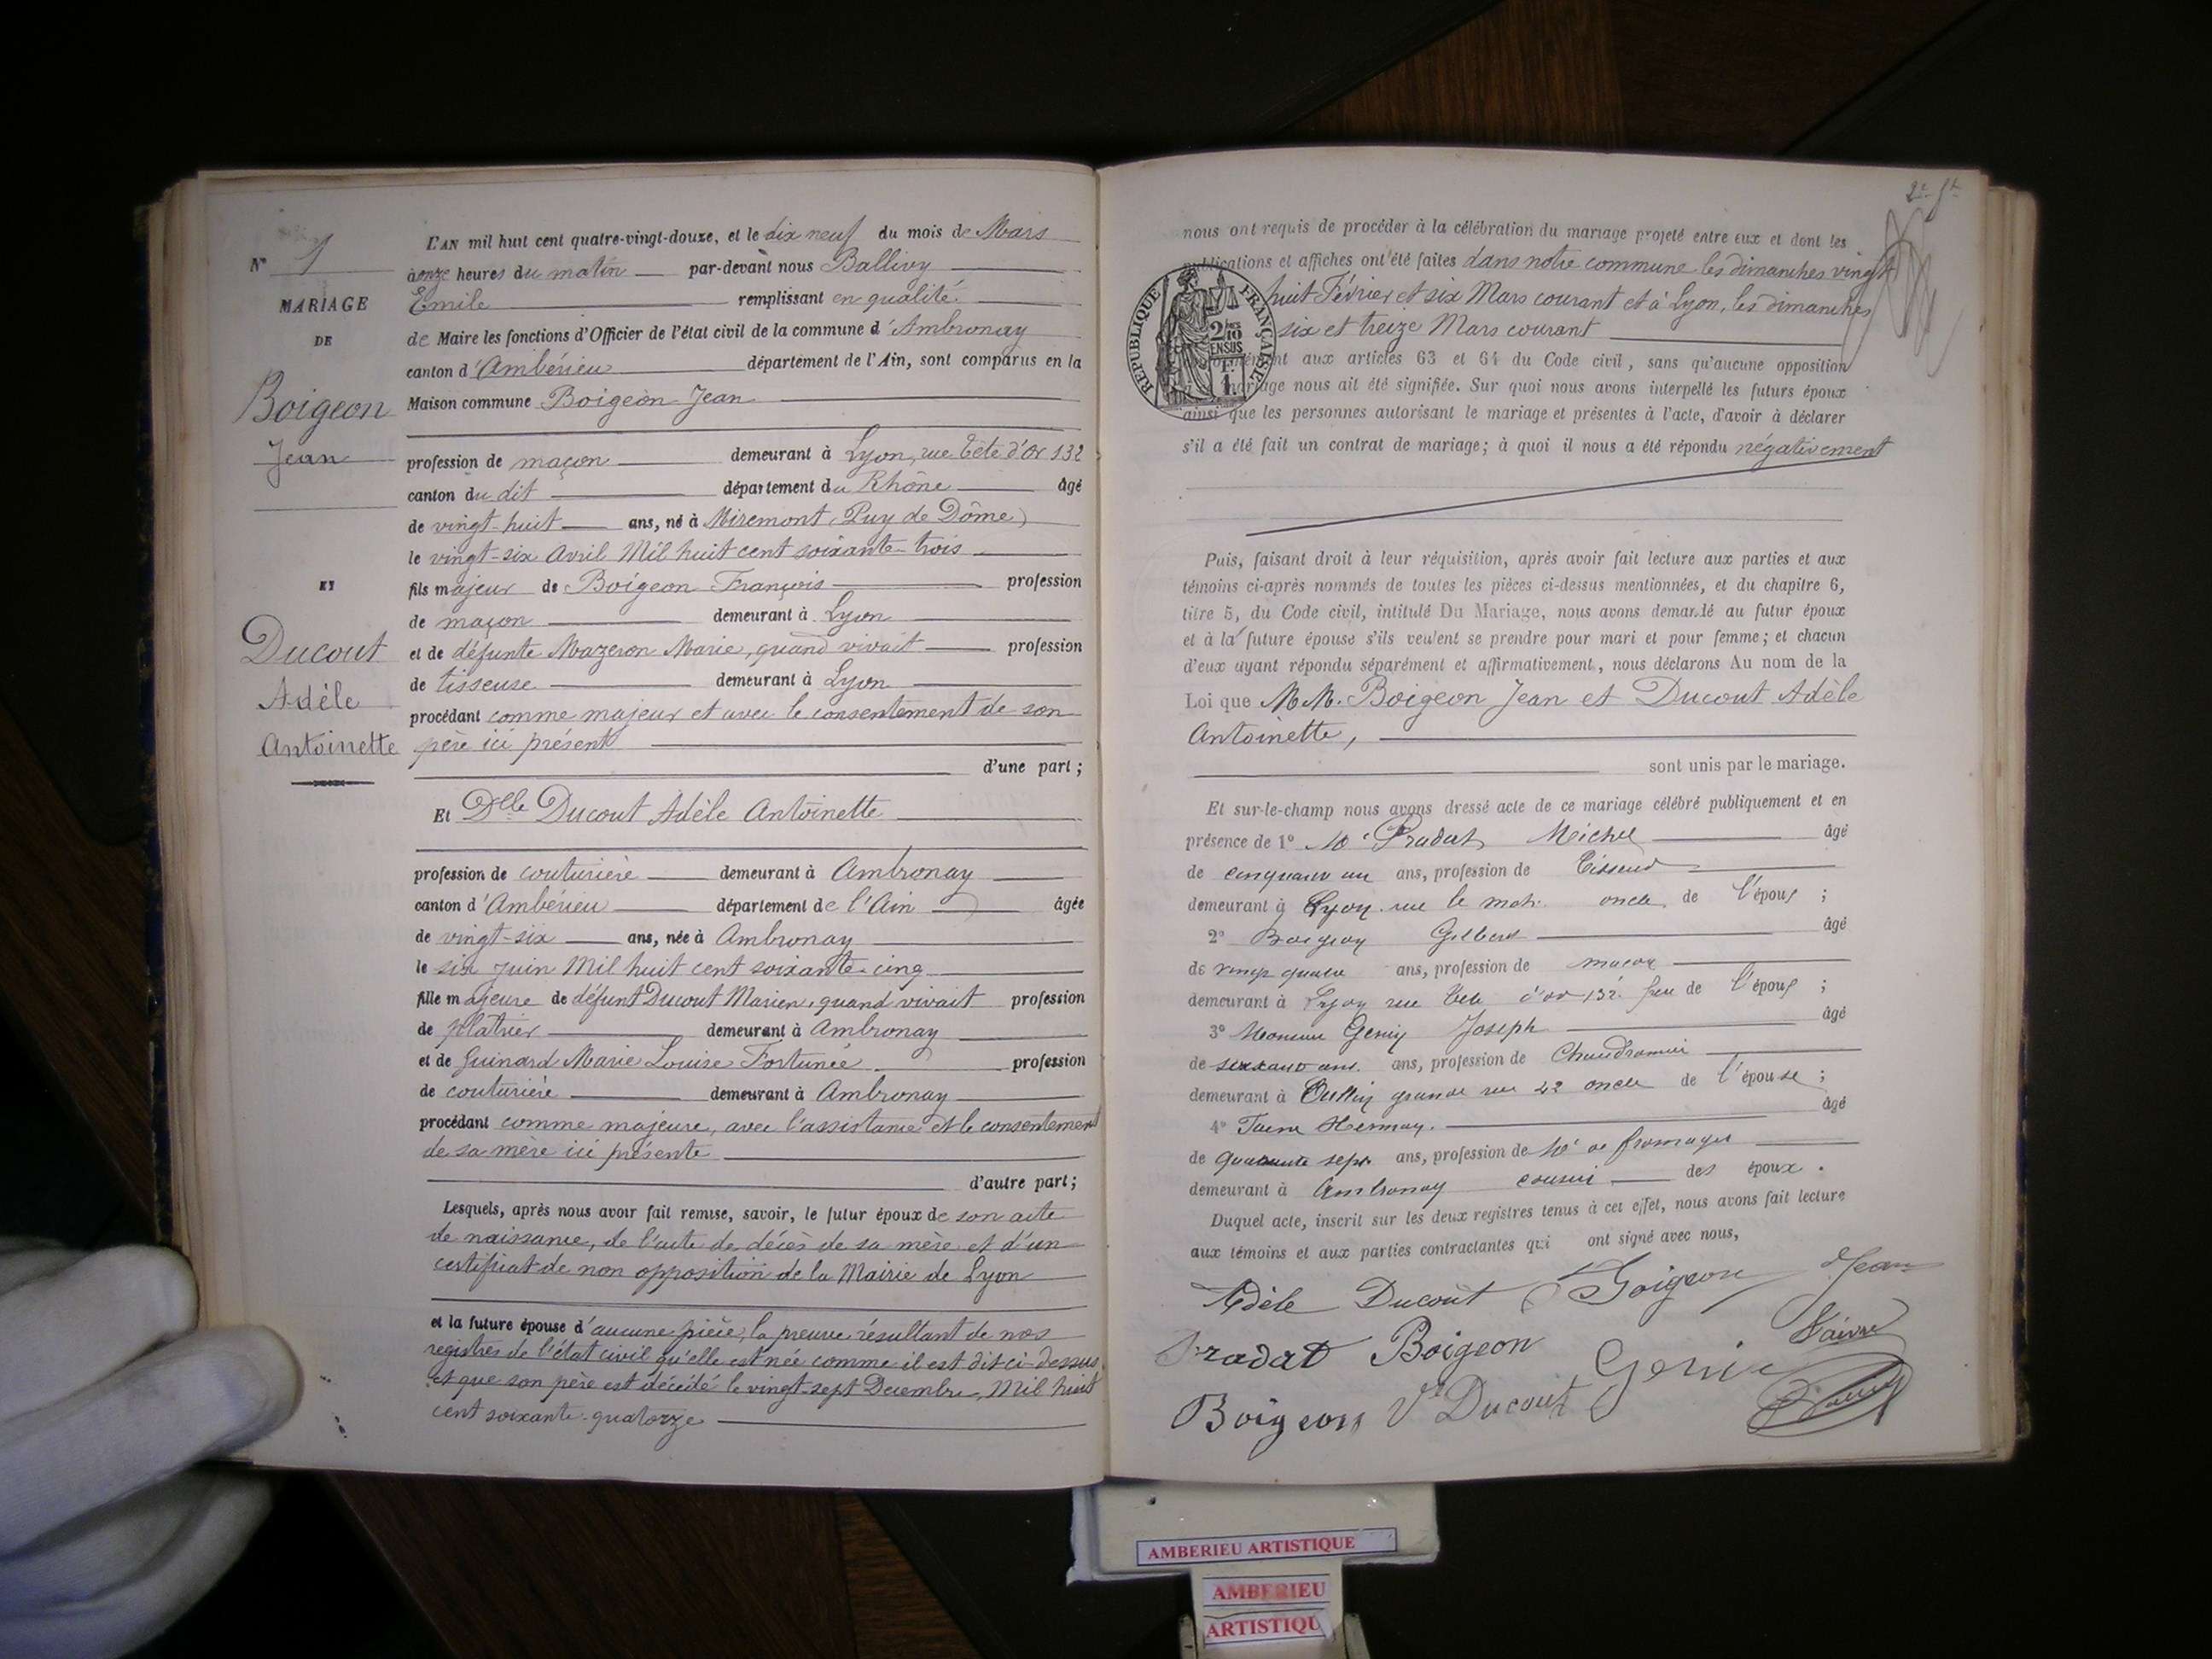 N° 1
MARIAGE
DE
Boigeon
Jean
ET
Ducout
Adèle
Antoinette
L'AN mil huit cent quatre-vingt-douze, et le dix neuf du mois de Mars
à onze heures du matin par-devant nous Ballivy
Emile remplissant en qualité
de Maire les fonctions d'Officier de l'état civil de la commune d'Ambronay
canton d'Ambérieu département de l'Ain, sont comparus en la
Maison commune Boigeon Jean
profession de maçon demeurant à Lyon, rue Tête d'Or 132
canton du dit département du Rhône âgé
de vingt-huit ans, né à Miremont (Puy de Dôme)
le vingt-six Avril Mil huit cent soixante-trois
fils majeur de Boigeon François profession
de maçon demeurant à Lyon
et de défunte Mazeron Marie, quand vivait profession
de tisseuse demeurant à Lyon
procédant comme majeur et avec le consentement de son
père ici présent
d'une part ;
Et Delle Ducout Adèle Antoinette
profession de couturière demeurant à Ambronay
canton d'Ambérieu département de l'Ain âgée
de vingt-six ans, née à Ambronay
le six Juin Mil huit cent soixante-cinq
fille majeure de défunt Ducout Marien, quand vivait profession
de plâtrier demeurant à Ambronay
et de Guinard Marie Louise Fortunée profession
de couturière demeurant à Ambronay
procédant comme majeure, avec l'assistance et le consentement
de sa mère ici présente
d'autre part ;
Lesquels, après nous avoir fait remise, savoir, le futur époux de son acte
de naissance, de l'acte de décès de sa mère et d'un
certificat de non opposition de la Mairie de Lyon
et la future épouse d'aucune pièce, la preuve résultant de nos
registres de l'état civil qu'elle est née comme il est dit ci-dessus
et que son père est décédé le vingt-sept Decembre, Mil huit
cent soixante-quatorze
nous ont requis de procéder à la célébration du mariage projeté entre eux et dont les
publications et affiches ont été faites dans notre commune les dimanches vingt
huit Février et six Mars courant et à Lyon, les dimanches
six et treize Mars courant
conformément aux articles 63 et 64 du Code civil, sans qu'aucune opposition
mariage nous ait été signifiée. Sur quoi nous avons interpellé les futurs époux
ainsi que les personnes autorisant le mariage et présentes à l'acte, d'avoir à déclarer
s'il a été fait un contrat de mariage ; à quoi il nous a été répondu négativement
RÉPUBLIQUE FRANÇAISE
2/10
EN SUS
1 F.
Puis, faisant droit à leur réquisition, après avoir fait lecture aux parties et aux
témoins ci-après nommés de toutes les pièces ci-dessus mentionnées, et du chapitre 6,
titre 5, du Code civil, intitulé Du Mariage, nous avons demandé au futur époux
et à la future épouse s'ils veulent se prendre pour mari et pour femme ; et chacun
d'eux ayant répondu séparément et affirmativement, nous déclarons Au nom de la
Loi que M.M. Boigeon Jean et Ducout Adèle
Antoinette,
sont unis par le mariage.
Et sur-le-champ nous avons dressé acte de ce mariage célébré publiquement et en
présence de 1° Pradat Michel âgé
de cinquante un ans, profession de Tisseur
demeurant à Lyon rue oncle de l'époux ;
2° Boigeon Gilbert âgé
de vingt quatre ans, profession de maçon
demeurant à Lyon rue Tête d'or 132 de l'époux ;
3° Monsieur Genis Joseph âgé
de ans, profession de
demeurant à Oullins grande rue 42 oncle de l'épouse ;
4° âgé
de quarante sept ans, profession de fromages
demeurant à Ambronay cousin des époux.
Duquel acte, inscrit sur les deux registres tenus à cet effet, nous avons fait lecture
aux témoins et aux parties contractantes qui ont signé avec nous,
Adèle Ducout Boigeon Jean
Pradat Boigeon Genis
Boigeon Ve Ducout
AMBERIEU ARTISTIQUE
AMBERIEU
ARTISTIQU